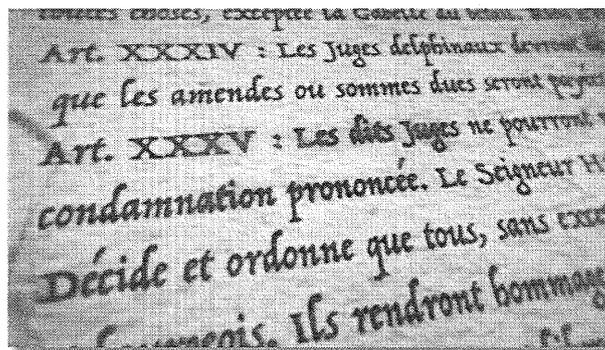 toutes choses, exceptée la Gabelle du
Art. XXXIV : Les Juges delphinaux devront
que les amendes ou sommes dues seront
Art. XXXV : Les dits Juges ne pourront
condamnation prononcée. Le Seigneur
Décide et ordonne que tous, sans
Ils rendront hommage